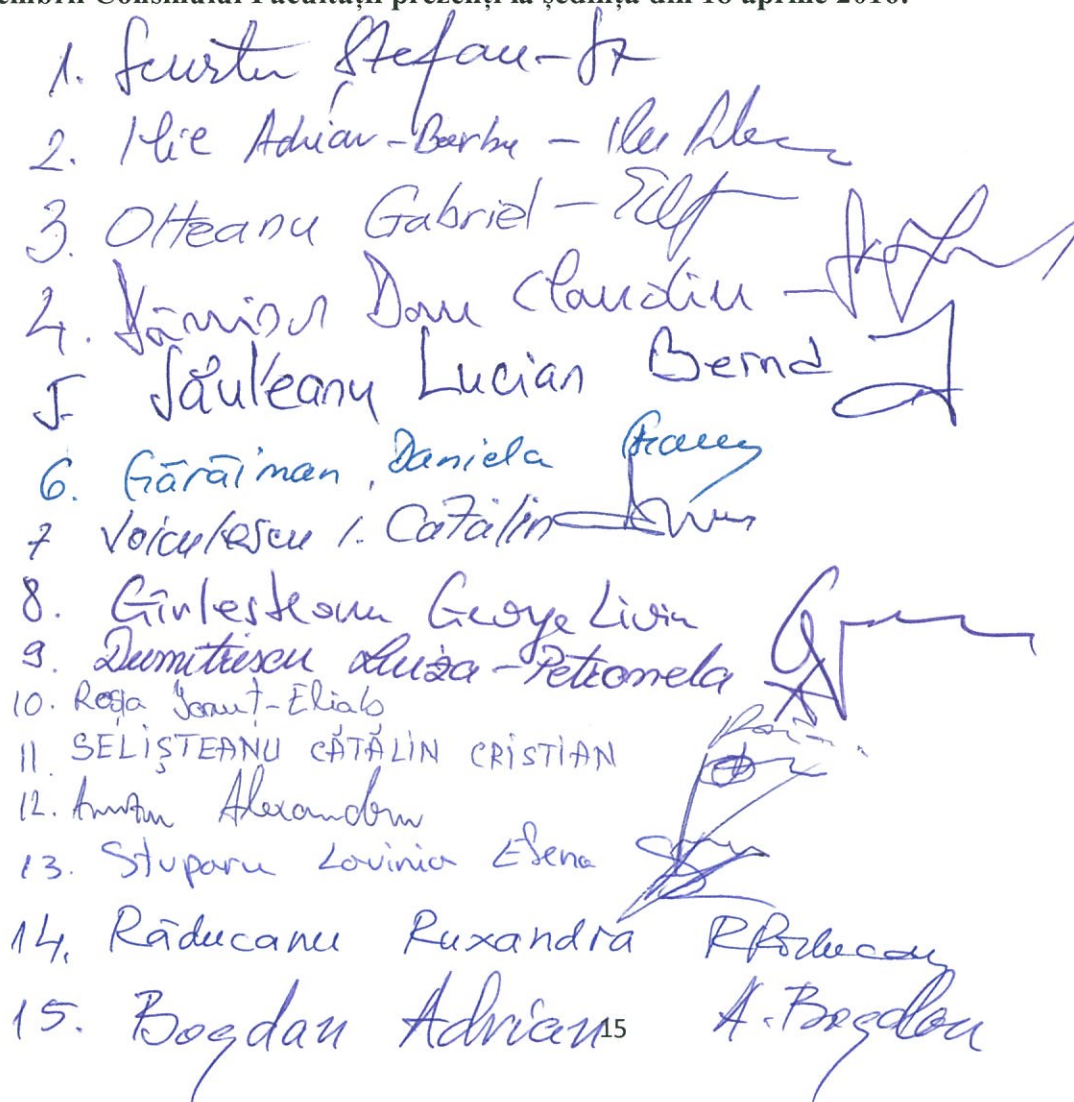 Membrii Consiliului Facultății prezenți la ședința din 18 aprilie 2016:
1. Scurtu Ștefan -
2. Ilie Adrian-Barbu - Ilie
3. Olteanu Gabriel -
4. Dan Claudiu -
5 Săuleanu Lucian Bernd
6. Gărăiman, Daniela
7 Voiculescu I. Cătălin
8. Gîrleșteanu George Liviu
9. Dumitrescu Luiza-Petronela
10. Roșia Ionuț-Eliab
11. SELIȘTEANU CĂTĂLIN CRISTIAN
12. Alexandru
13. Stuparu Lavinia Elena
14. Răducanu Ruxandra R Răducanu
15. Bogdan Adrian A. Bogdan
15